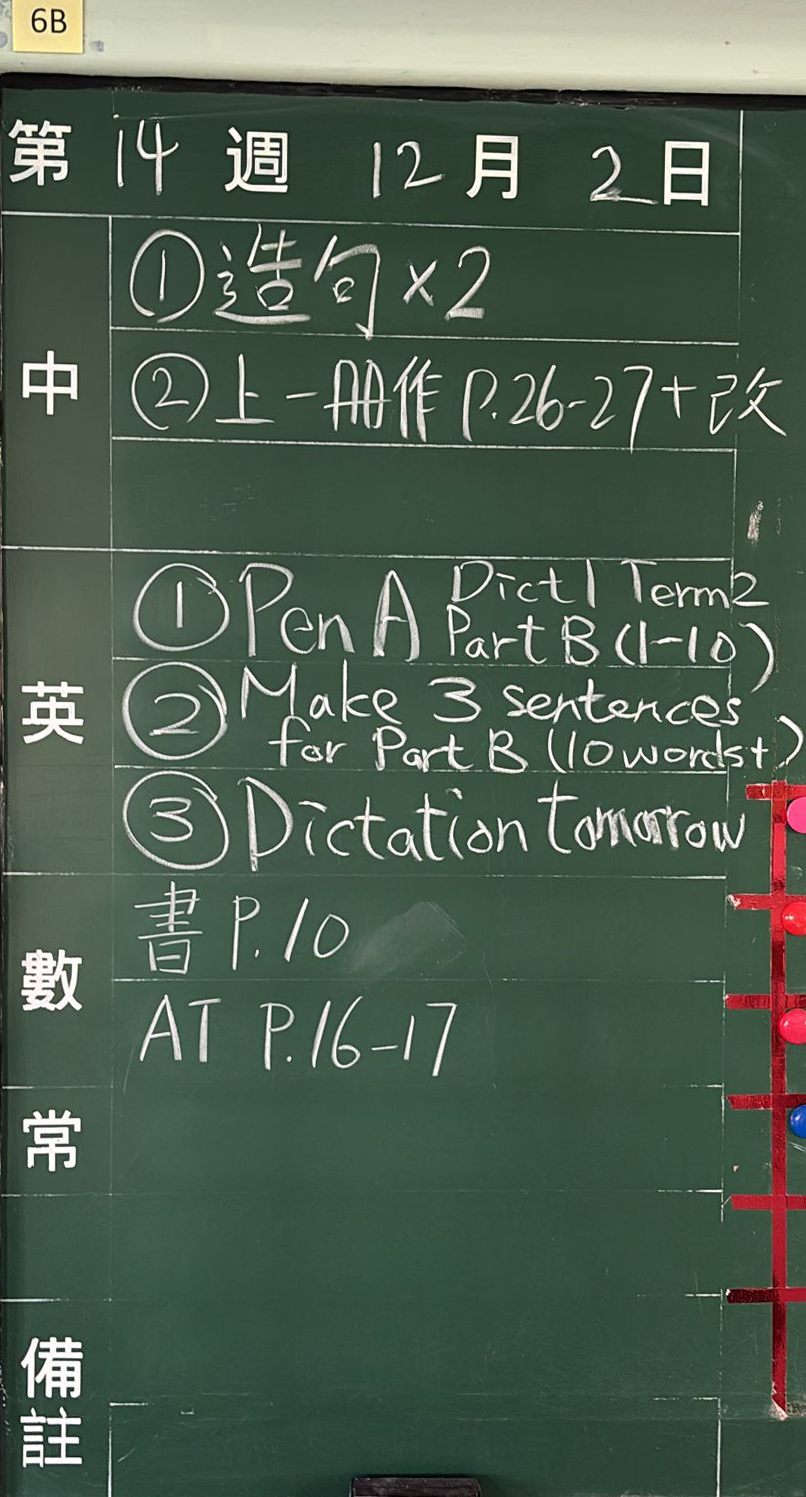 6B
第 14 週 12 月 2 日
中
① 造句 x2
② 上一冊作 P.26-27+改
英
① Pen A Dict 1 Term 2
Part B (1-10)
② Make 3 sentences
for Part B (10 words+)
③ Dictation tomorrow
數
書 P.10
AT P.16-17
常
備註